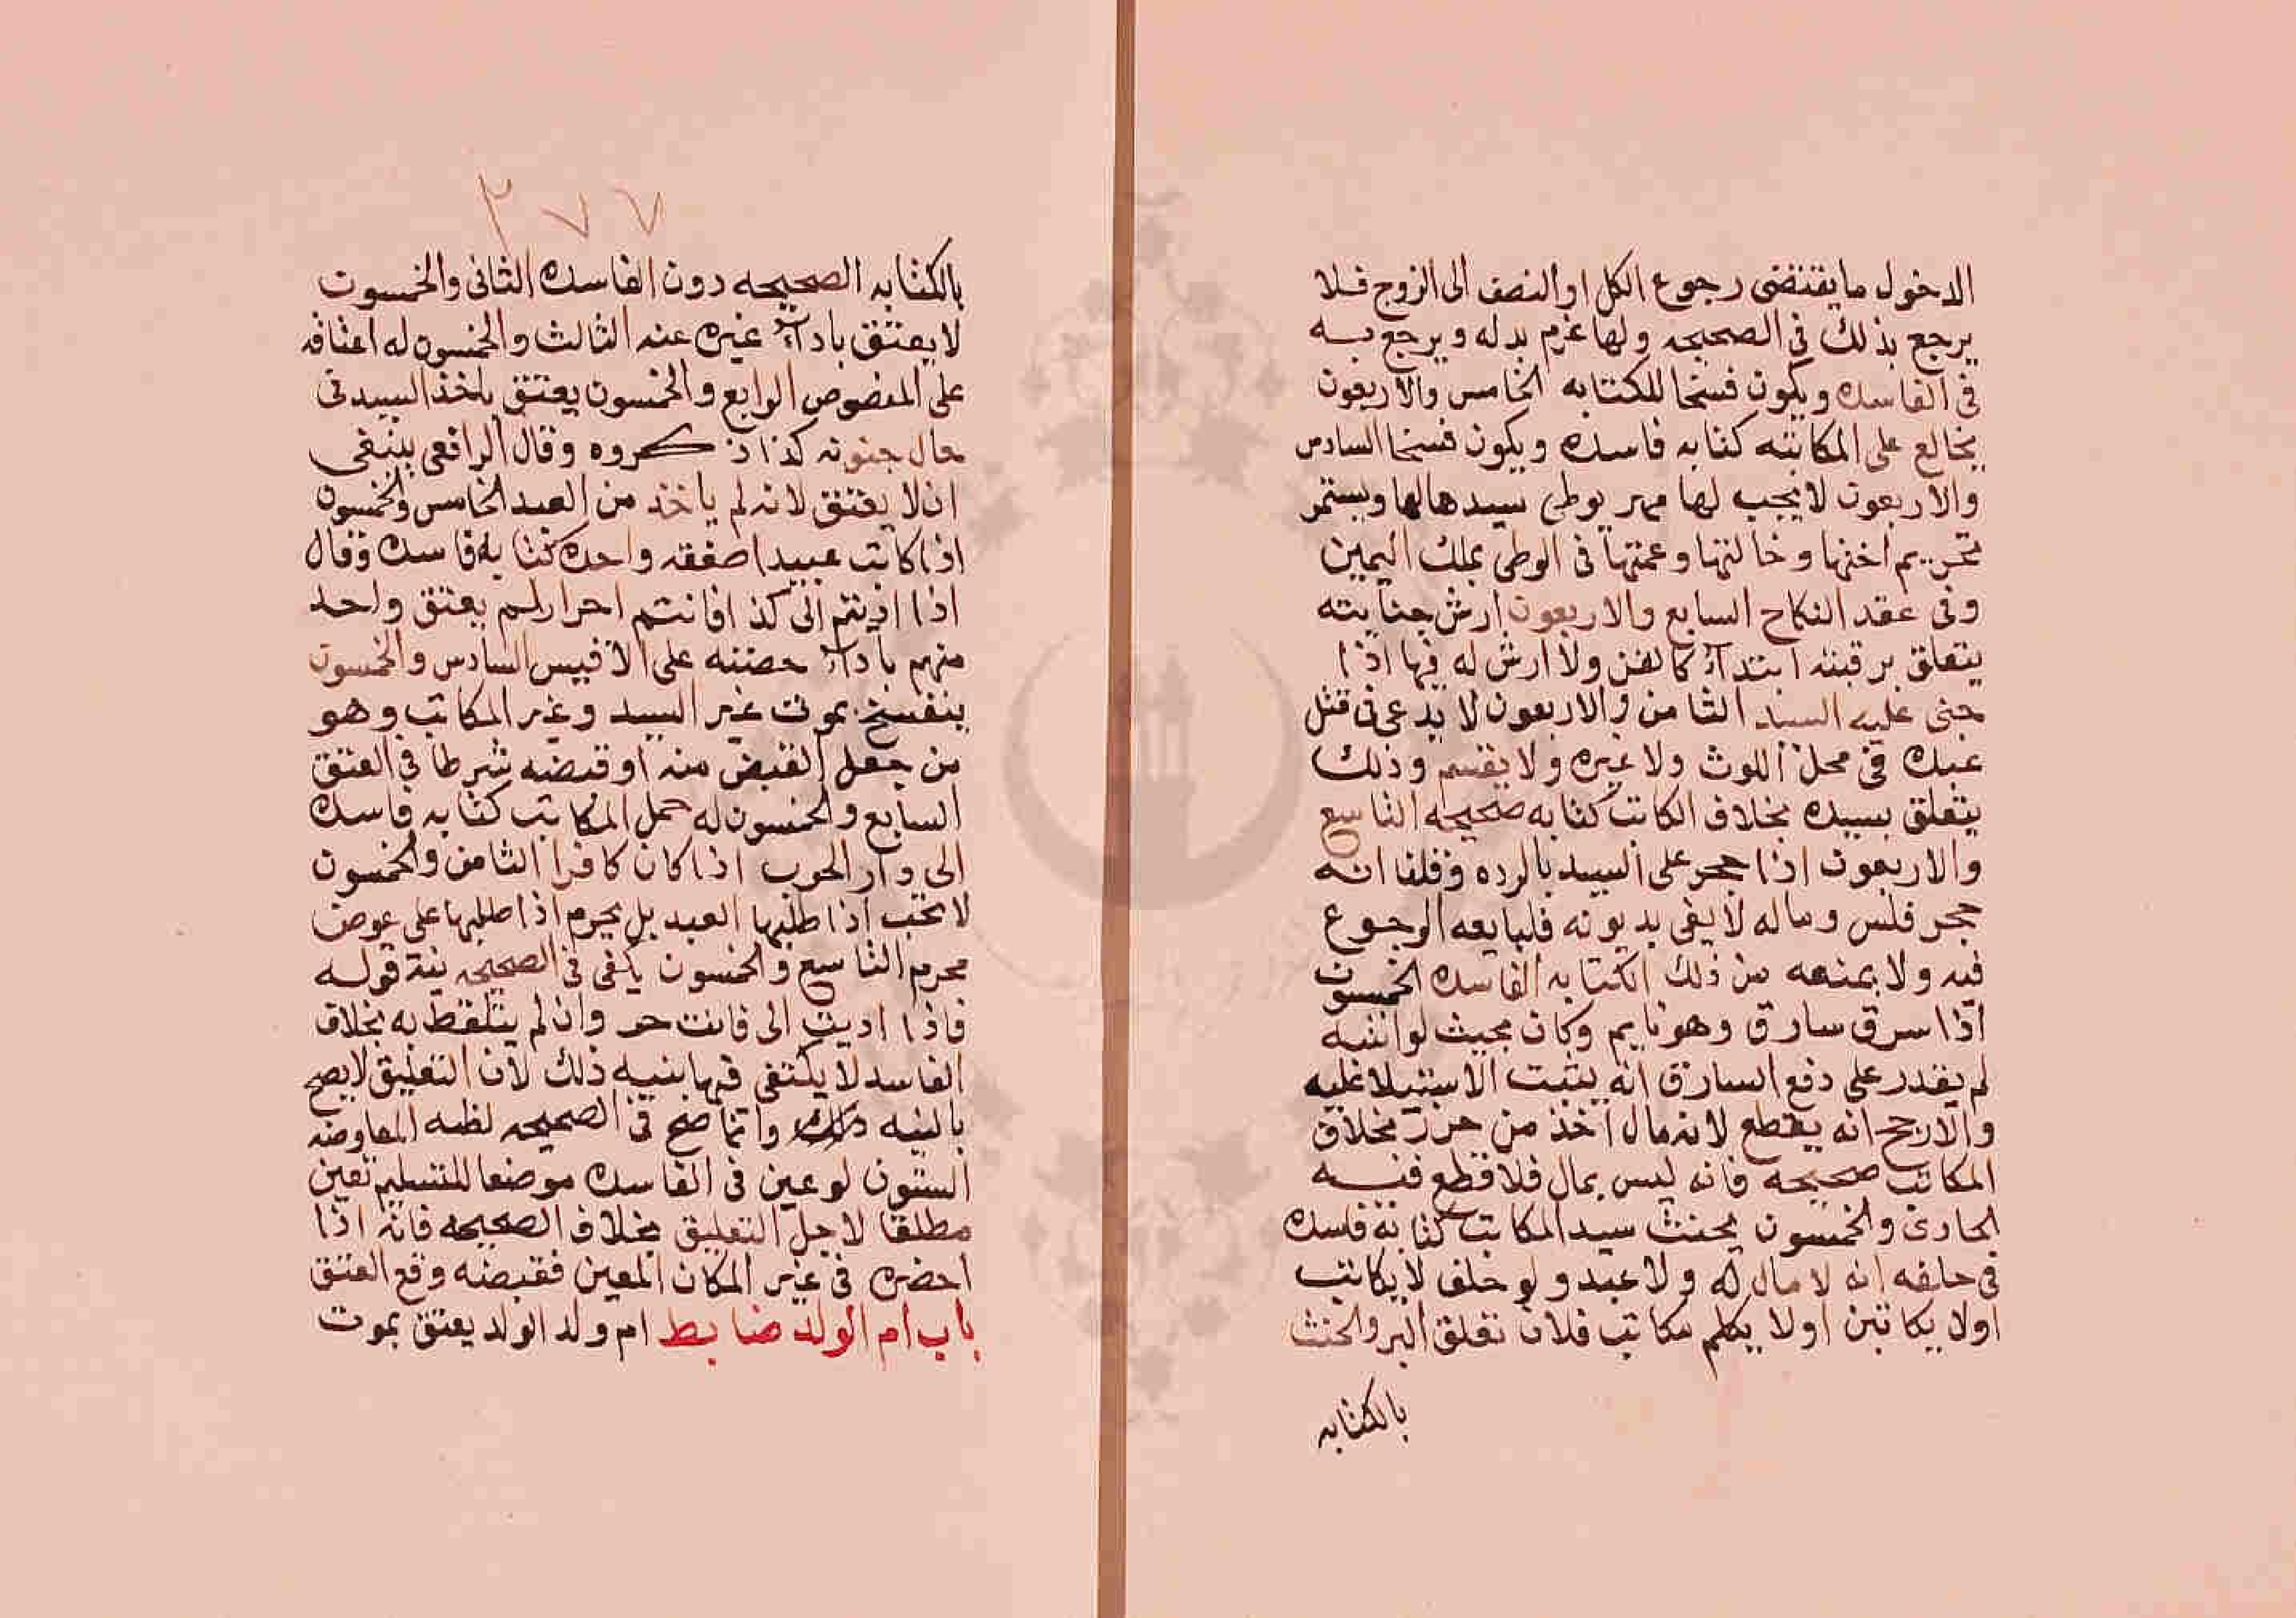 الدخول ما يقتضى رجوع الكل او النصف الى الزوج فلا
يرجع بذلك فى الصحيحه ولها غرم بدله ويرجع به
فى الفاسده ويكون فسخا للكتابه الخامس والاربعون
يخالع على المكاتبه كتابه فاسده ويكون فسخا السادس
والاربعون لا يجب لها مهر بوطى سيدها لها ويستمر
تحريم اختها وخالتها وعمتها فى الوطى بملك اليمين
وفى عقد النكاح السابع والاربعون ارش جنايته
يتعلق برقبته ابتداء كالقن ولا ارش له فيها اذا
جنى عليه السيد الثامن والاربعون لا يدعى فى قتل
عبده فى محل اللوث ولا غيره ولا يقسم وذلك
يتعلق بسيده بخلاف الكاتب كتابه صحيحه التاسع
والاربعون اذا حجر على السيد بالرده وقلنا انه
حجر فلس وماله لا يفى بديونه فلبايعه الرجوع
فيه ولا يمنعه من ذلك الكتابه الفاسده الخمسون
اذا سرق سارق وهو نايم وكان بحيث لو انتبه
لم يقدر على دفع السارق انه يثبت الاستيلا عليه
والارجح انه يقطع لانه مال اخذ من حرز بخلاف
المكاتب صحيحه فانه ليس بمال فلا قطع فيه
الحادى والخمسون يحنث سيد المكاتب كتابة فاسده
فى حلفه انه لا مال له ولا عبد ولو حلف لا يكاتب
اولا يكاتبن اولا يكلم مكاتب فلان تعلق البر والحنث
بالكتابه
٢٧٧
بالكتابه الصحيحه دون الفاسده الثانى والخمسون
لا يعتق باداء غيره عنه الثالث والخمسون له اعتاقه
على المنصوص الرابع والخمسون يعتق باخذ السيد فى
حال جنونه كذا ذكروه وقال الرافعى ينبغى
ان لا يعتق لانه لم ياخذ من العبد الخامس والخمسون
اذا كاتب عبيدا صفقه واحده كتابه فاسده وقال
اذا اديتم الى كذا فانتم احرار لم يعتق واحد
منهم باداء حصته على الاقيس السادس والخمسون
ينفسخ بموت غير السيد وغير المكاتب وهو
من جعل القبض منه او قبضه شرطا فى العتق
السابع والخمسون له حمل المكاتب كتابه فاسده
الى دار الحرب اذا كان كافرا الثامن والخمسون
لا تجب اذا طلبها العبد بل يحرم اذا طلبها على عوض
محرم التاسع والخمسون يكفى فى الصحيحه نية قوله
فاذا اديت الى فانت حر وان لم يتلفظ به بخلاف
الفاسد لا يكتفى فيها بنيه ذلك لان التعليق لا يصح
بالنيه وانما صح فى الصحيحه المعاوضه
الستون لو عين فى الفاسده موضعا للتسليم تعين
مطلقا لاجل التعليق بخلاف الصحيحه فانه اذا
احضره فى غير المكان المعين فقبضه وقع العتق
باب ام الولد ضابط ام ولد الولد يعتق بموت